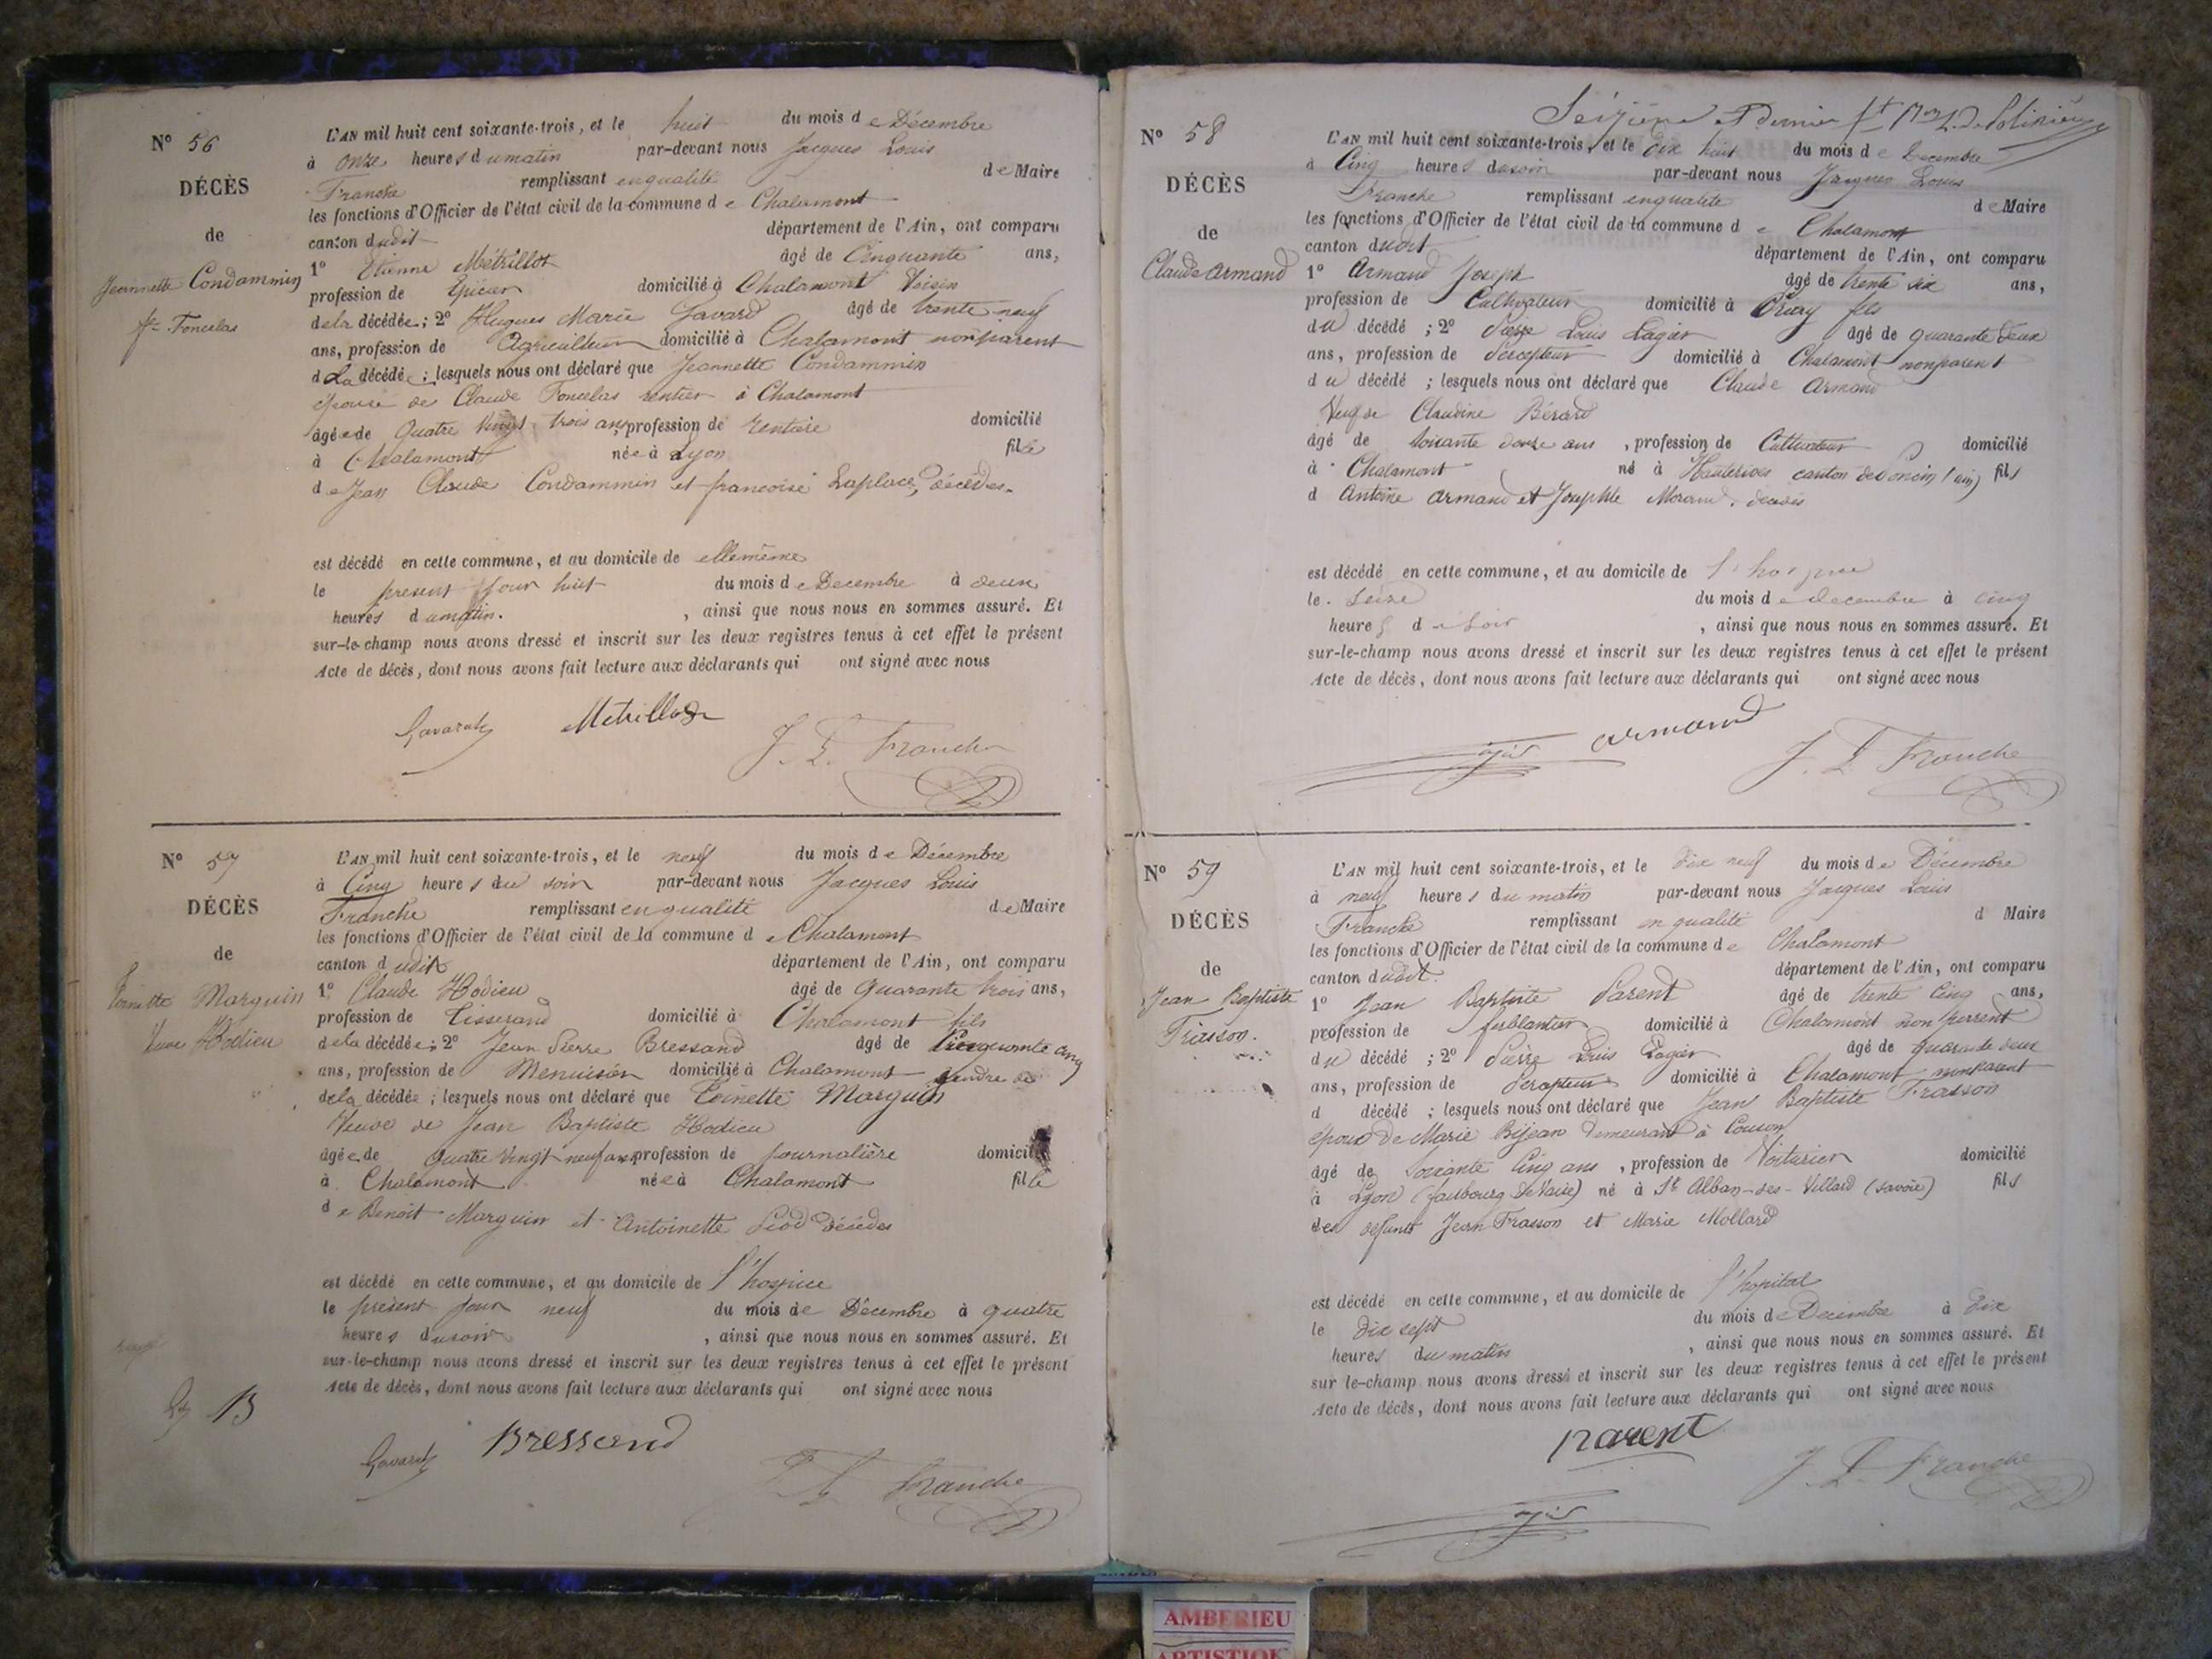 N° 56
DÉCÈS
de
Jeannette Condammin
fe Foncelas
L'AN mil huit cent soixante-trois, et le huit du mois de Décembre
à onze heures du matin par-devant nous Jacques Louis
Franche remplissant en qualité de Maire
les fonctions d'Officier de l'état civil de la commune de Chalamont
canton dudit département de l'Ain, ont comparu
1° Etienne Métrillot âgé de Cinquante ans,
profession de Epicier domicilié à Chalamont Voisin
de la décédée ; 2° Hugues Marie Gavard âgé de trente neuf
ans, profession de Agriculteur domicilié à Chalamont non parent
d La décédée ; lesquels nous ont déclaré que Jeannette Condammin
épouse de Claude Foncelas rentier à Chalamont
âgée de Quatre vingt trois ans, profession de rentière domicilié
à Chalamont née à Lyon fille
de Jean Claude Condammin et françoise Laplace, décédés.
est décédé en cette commune, et au domicile de elle même
le présent jour huit du mois de Decembre à deux
heures du matin. , ainsi que nous nous en sommes assuré. Et
sur-le-champ nous avons dressé et inscrit sur les deux registres tenus à cet effet le présent
Acte de décès, dont nous avons fait lecture aux déclarants qui ont signé avec nous
Métrillot
J. L. Franche
N° 57
DÉCÈS
de
Toinette Marguin
Veuve Hodieu
L'AN mil huit cent soixante-trois, et le neuf du mois de Décembre
à Cinq heures du soir par-devant nous Jacques Louis
Franche remplissant en qualité de Maire
les fonctions d'Officier de l'état civil de la commune de Chalamont
canton dudit département de l'Ain, ont comparu
1° Claude Hodieu âgé de Quarante trois ans,
profession de Tisserand domicilié à Chalamont fils
de la décédée ; 2° Jean Pierre Bressand âgé de Cinquante cinq
ans, profession de Menuisier domicilié à Chalamont gendre de
de la décédée ; lesquels nous ont déclaré que Toinette Marguin
Veuve de Jean Baptiste Hodieu
âgée de Quatre vingt neuf ans profession de journalière domicilié
à Chalamont née à Chalamont fille
de Benoît Marguin et Antoinette décédés
est décédé en cette commune, et au domicile de l'hospice
le présent jour neuf du mois de Décembre à quatre
heures du soir , ainsi que nous nous en sommes assuré. Et
sur-le-champ nous avons dressé et inscrit sur les deux registres tenus à cet effet le présent
Acte de décès, dont nous avons fait lecture aux déclarants qui ont signé avec nous
Bressand
J. L. Franche
Seizième et Dernier
N° 58
DÉCÈS
de
Claude Armand
L'AN mil huit cent soixante-trois, et le dix huit du mois de Decembre
à Cinq heures du soir par-devant nous Jacques Louis
Franche remplissant en qualité de Maire
les fonctions d'Officier de l'état civil de la commune de Chalamont
canton dudit département de l'Ain, ont comparu
1° Armand Joseph âgé de trente six ans,
profession de Cultivateur domicilié à Druy fils
du décédé ; 2° Pierre Louis Lagier âgé de quarante deux
ans, profession de Percepteur domicilié à Chalamont non parent
du décédé ; lesquels nous ont déclaré que Claude Armand
Veuf de Claudine Bérard
âgé de soixante douze ans , profession de Cultivateur domicilié
à Chalamont né à Hauterives canton de Poncin (ain) fils
d Antoine Armand et Josephte Morand. décédés
est décédé en cette commune, et au domicile de l'hospice
le seize du mois de decembre à cinq
heures de soir , ainsi que nous nous en sommes assuré. Et
sur-le-champ nous avons dressé et inscrit sur les deux registres tenus à cet effet le présent
Acte de décès, dont nous avons fait lecture aux déclarants qui ont signé avec nous
armand
J. L. Franche
N° 59
DÉCÈS
de
Jean Baptiste
Frasson.
L'AN mil huit cent soixante-trois, et le dix neuf du mois de Décembre
à neuf heures du matin par-devant nous Jacques Louis
Franche remplissant en qualité d Maire
les fonctions d'Officier de l'état civil de la commune de Chalamont
canton dudit. département de l'Ain, ont comparu
1° Jean Baptiste Parent âgé de trente Cinq ans,
profession de ferblantier domicilié à Chalamont non parent
du décédé ; 2° Pierre Louis Lagier âgé de quarante deux
ans, profession de Percepteur domicilié à Chalamont non parent
d décédé ; lesquels nous ont déclaré que Jean Baptiste Frasson
époux de Marie Bijean demeurant à Couson
âgé de Soixante Cinq ans , profession de Voiturier domicilié
à Lyon (faubourg de Vaise) né à St Alban-des-Villard (savoie) fils
des défunts Jean Frasson et Marie Mollard
est décédé en cette commune, et au domicile de l'hopital
le dix sept du mois de Decembre à dix
heures du matin , ainsi que nous nous en sommes assuré. Et
sur le-champ nous avons dressé et inscrit sur les deux registres tenus à cet effet le présent
Acte de décès, dont nous avons fait lecture aux déclarants qui ont signé avec nous
parent
J. L. Franche
AMBERIEU